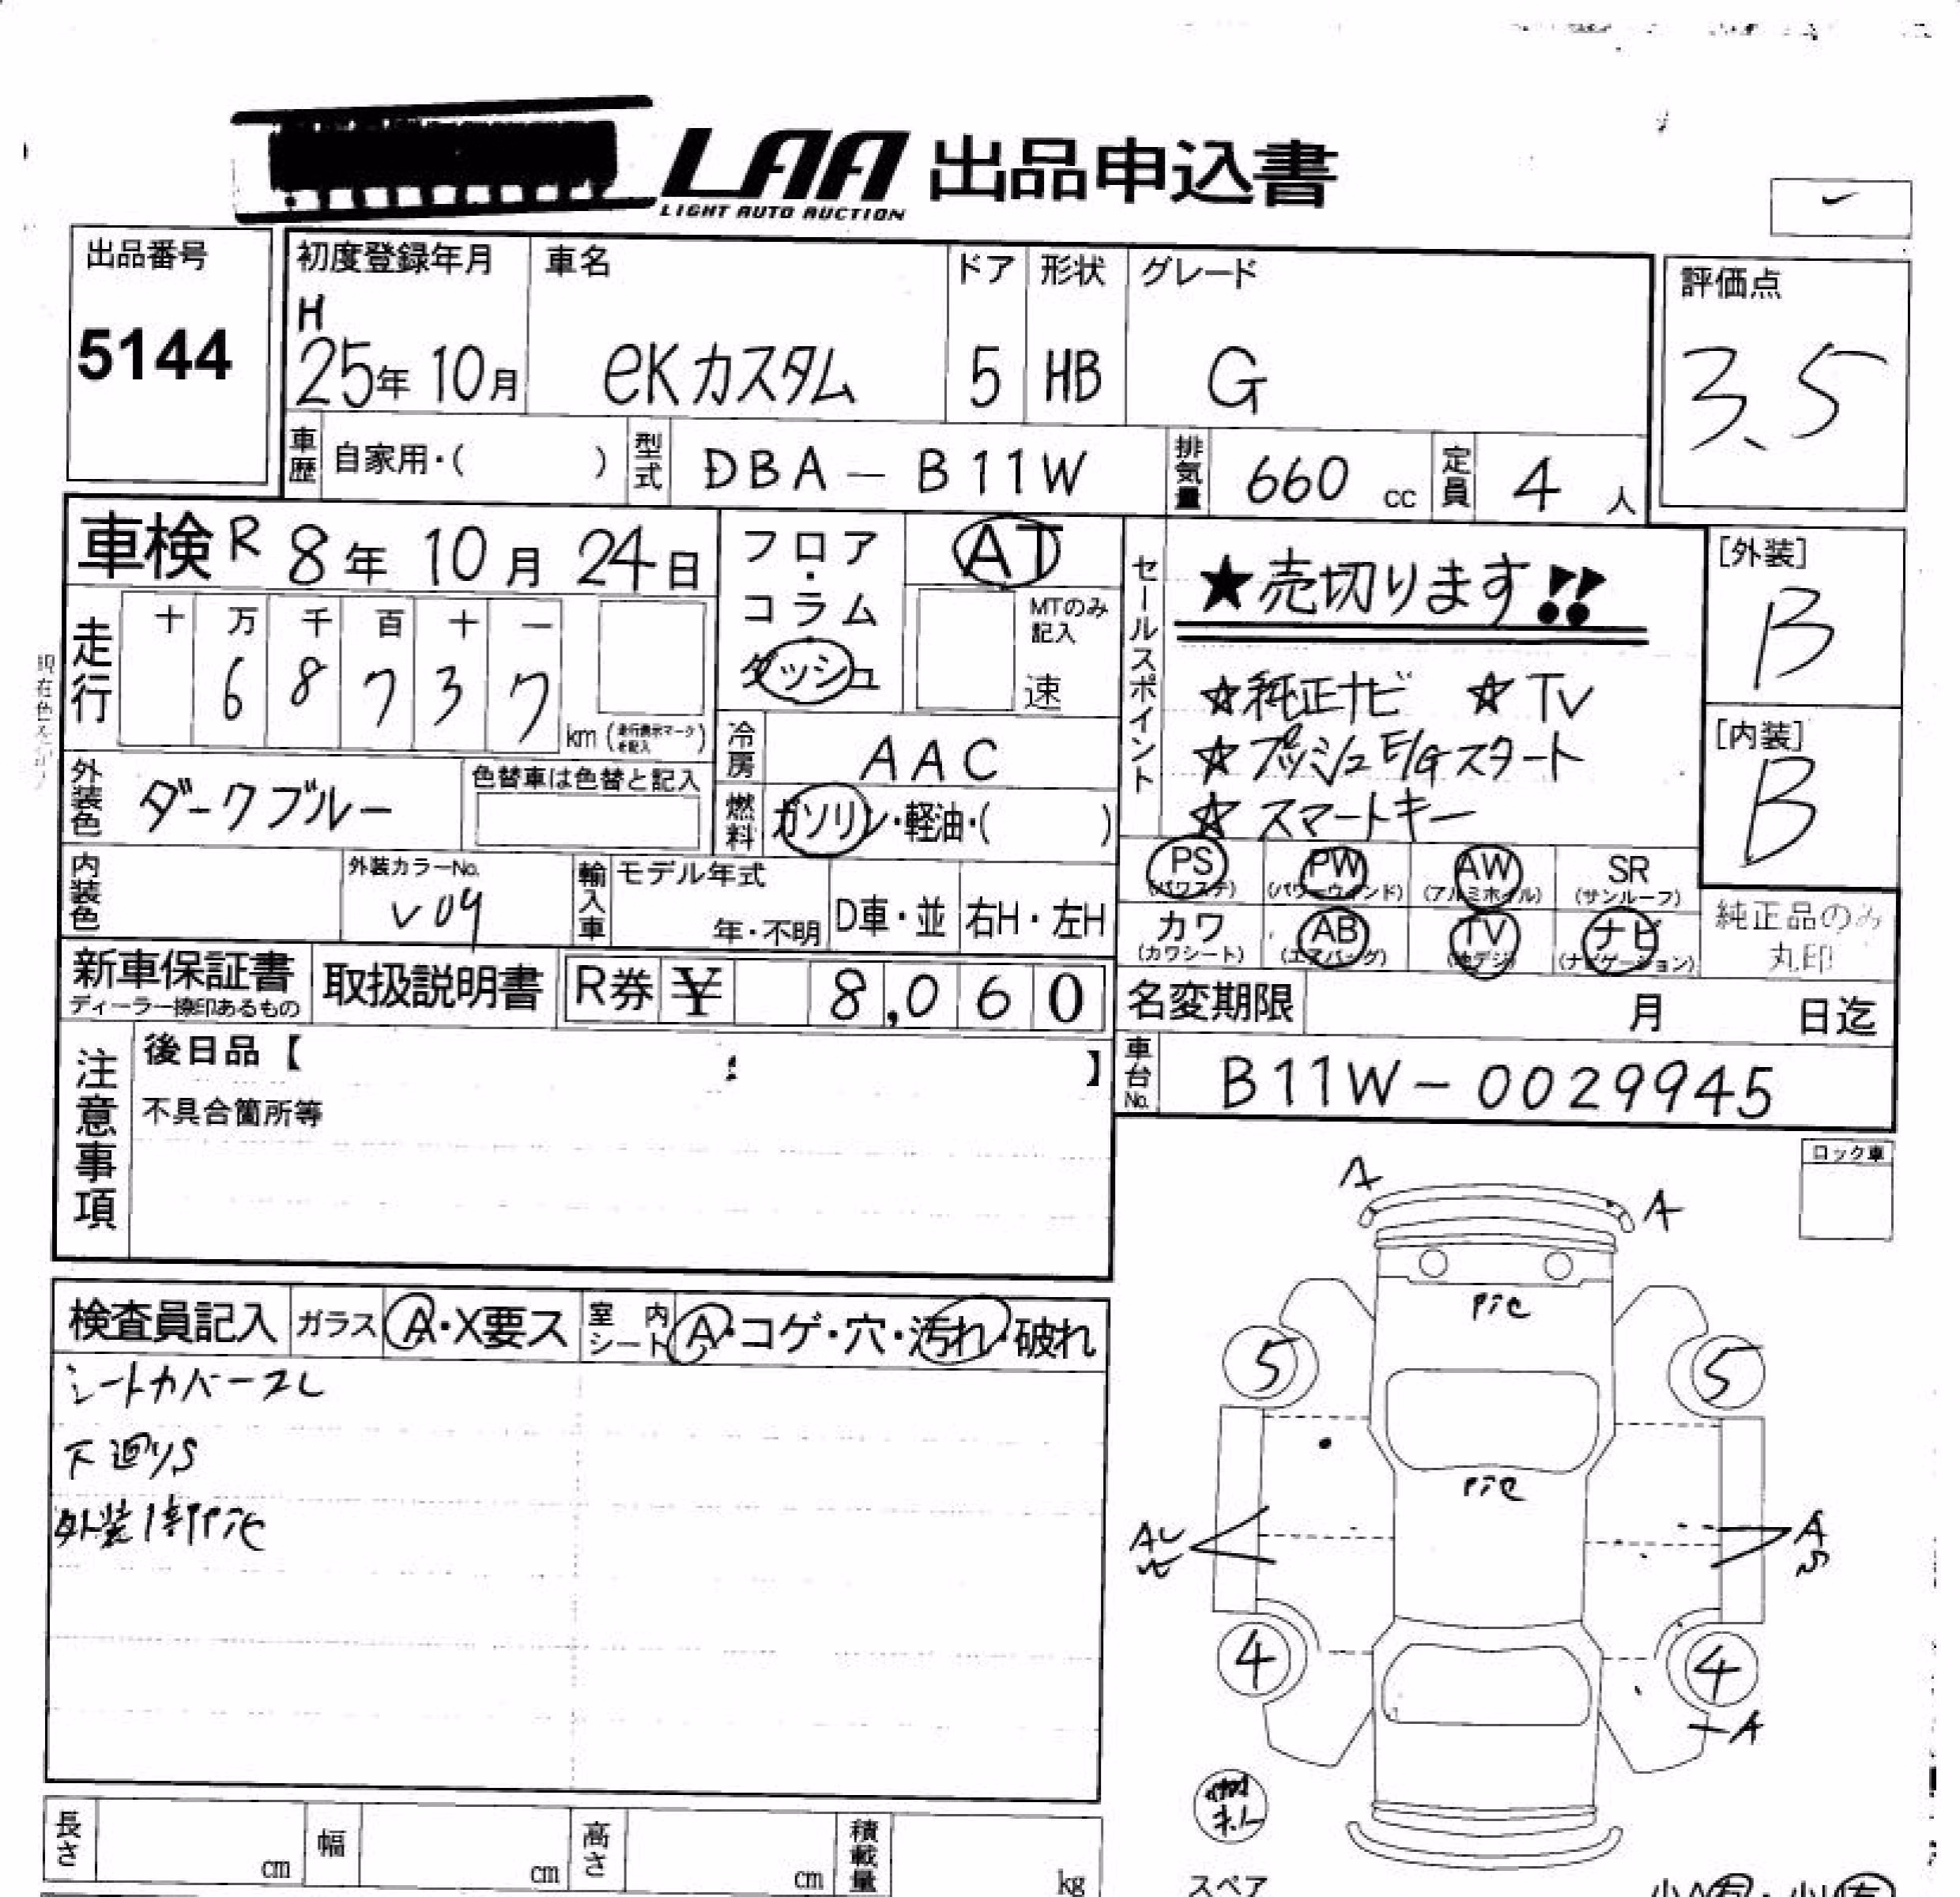 LAA 出品申込書
LIGHT AUTO AUCTION
出品番号
5144
初度登録年月
H
25年 10月
車名
eKカスタム
ドア
5
形状
HB
グレード
G
評価点
3.5
車歴 自家用・( )
型式 DBA-B11W
排気量 660 cc
定員 4 人
車検 R 8年 10月 24日
走行
十 万 千 百 十 一
6 8 7 3 7
km (走行表示マークを記入)
フロア・コラム・ダッシュ
AT
MTのみ記入
速
セールスポイント
★売切ります!!
☆純正ナビ ☆TV
☆プッシュE/Gスタート
☆スマートキー
[外装]
B
[内装]
B
外装色 ダークブルー
色替車は色替と記入
冷房 AAC
燃料 ガソリン・軽油・( )
内装色
外装カラーNo.
V09
輸入車
モデル年式
年・不明
D車・並
右H・左H
PS (パワステ)
PW (パワーウインド)
AW (アルミホイル)
SR (サンルーフ)
カワ (カワシート)
AB (エアバッグ)
TV (地デジ)
ナビ (ナビゲーション)
純正品のみ
丸印
新車保証書
ディーラー捺印あるもの
取扱説明書
R券 ¥ 8,060
名変期限 月 日迄
注意事項
後日品【 】
不具合箇所等
車台No. B11W-0029945
ロック車
検査員記入
ガラス A・X要ス
室内シート A・コゲ・穴・汚れ・破れ
シートカバースレ
下廻りS
外装1部
A
A
5
5
A
A
S
4
4
A
長さ cm
幅 cm
高さ cm
積載量 kg
スペア